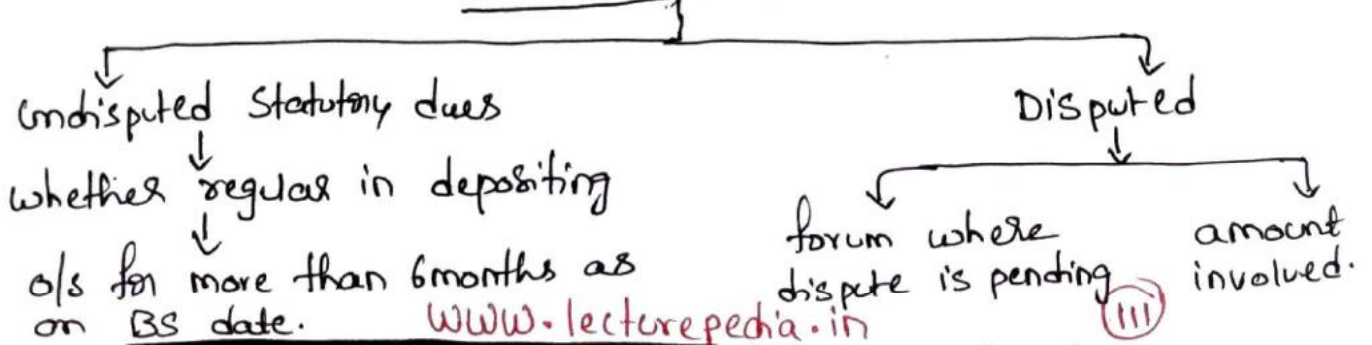 undisputed Statutory dues
whether regular in depositing
o/s for more than 6months as
on BS date.
Disputed
forum where
dispute is pending
amount
involved.
www.lecturepedia.in
111